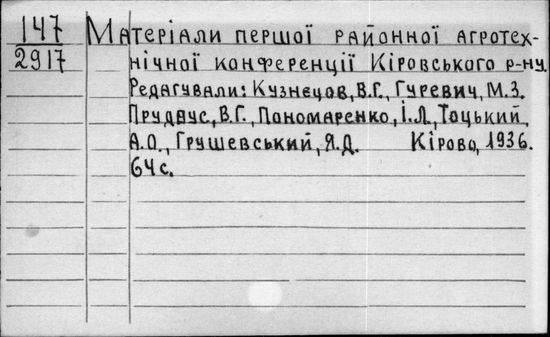 147
2917
Матеріали першої районної агротех-
нічної конференції Кіровського р-ну.
Редагували: Кузнєцов, В.Г., Гуревич, М.З.
Прудвус, В.Г., Пономаренко, І.Л., Тоцький,
А.О., Грушевський, Я.Д. Кірово, 1936.
64 с.